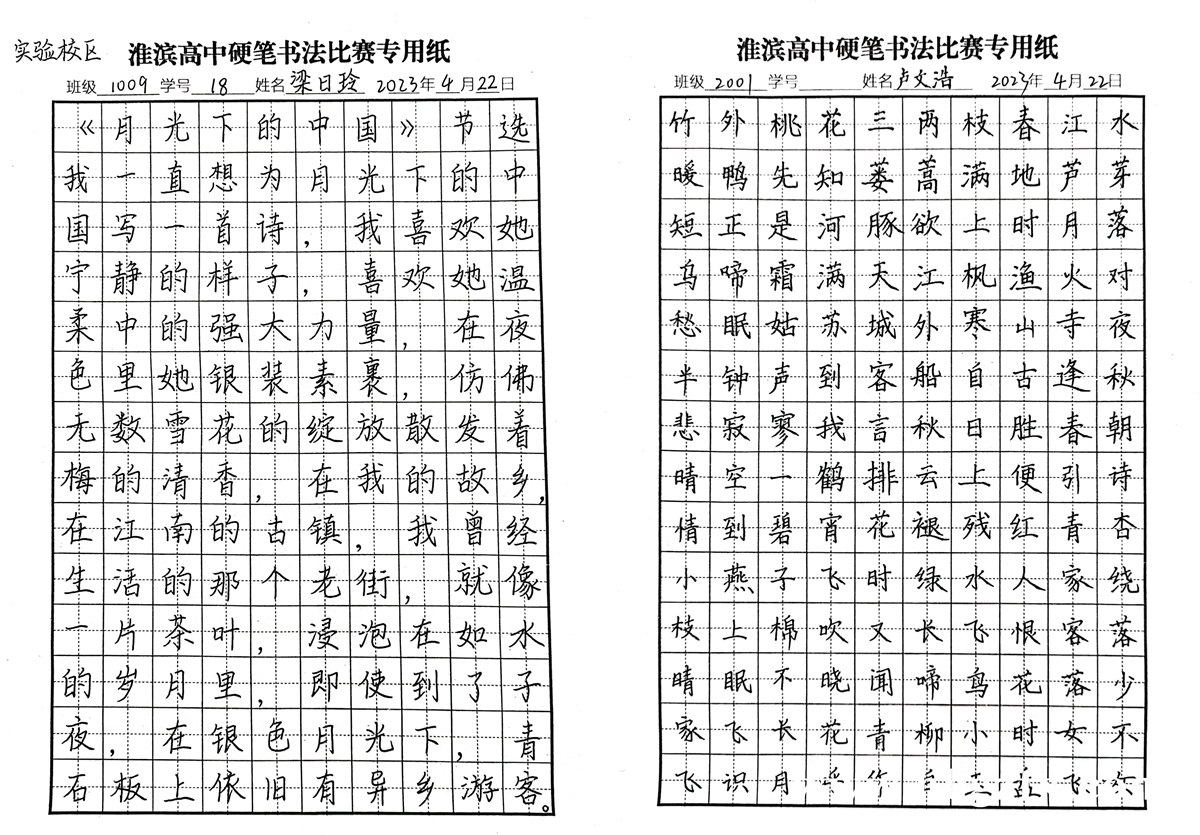 实验校区
淮滨高中硬笔书法比赛专用纸
班级 1009 学号 18 姓名 梁日玲 2023年4月22日
《月光下的中国》节选
我一直想为月光下的中
国写一首诗，我喜欢她
宁静的样子，喜欢她温
柔中的强大力量，在夜
色里她银装素裹，仿佛
无数雪花的绽放散发着
梅的清香，在我的故乡，
在江南的古镇，我曾经
生活的那个老街，就像
一片茶叶，浸泡在如水
的岁月里，即使到了子
夜，在银色月光下，青
石板上依旧有异乡游客。
淮滨高中硬笔书法比赛专用纸
班级 2001 学号 姓名 卢文浩 2023年4月22日
竹外桃花三两枝春江水
暖鸭先知蒌蒿满地芦芽
短正是河豚欲上时月落
乌啼霜满天江枫渔火对
愁眠姑苏城外寒山寺夜
半钟声到客船自古逢秋
悲寂寥我言秋日胜春朝
晴空一鹤排云上便引诗
情到碧宵花褪残红青杏
小燕子飞时绿水人家绕
枝上棉吹又长飞恨客落
晴眠不晓闻啼鸟花落少
家飞长花青柳小时女不
飞识月